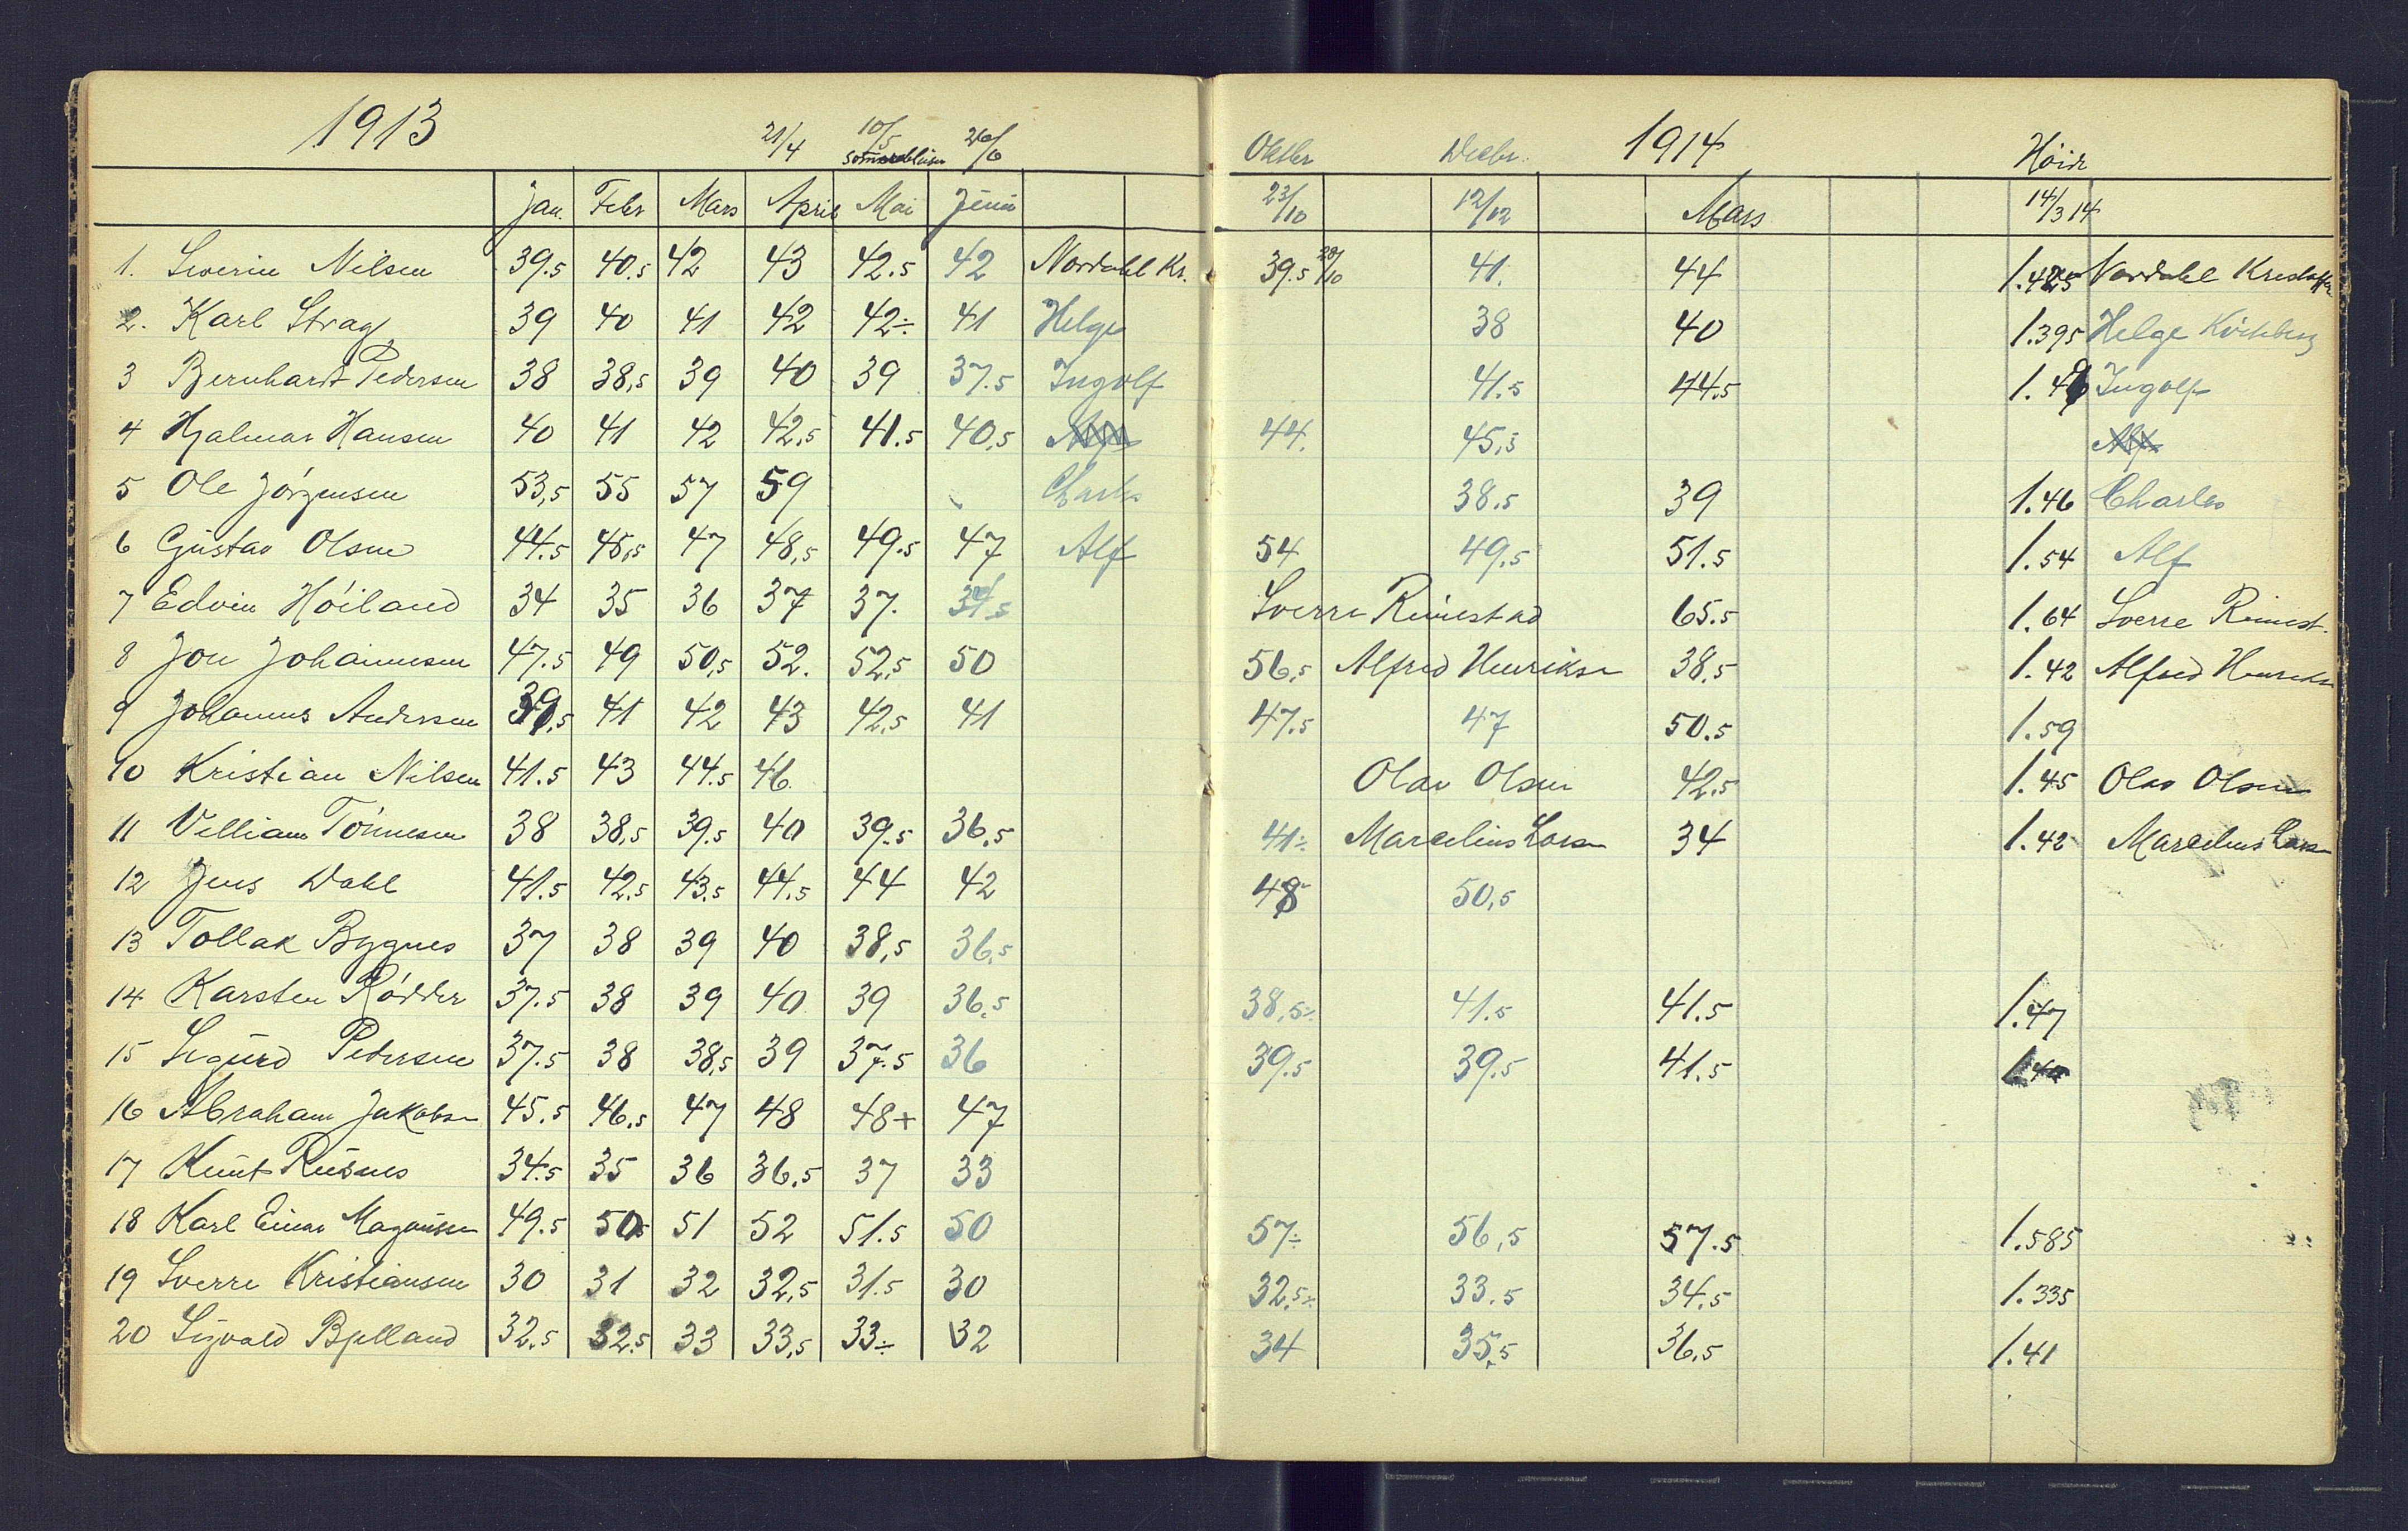 1913 21/4 10/5 20/6
Jan. Febr Mars April Mai Juni
1. Severin Nilsen 39.5 40.5 42 43 42.5 42 Nordahl Kr.
2. Karl Strag 39 40 41 42 42÷ 41 Helge
3 Bernhardt Pedersen 38 38,5 39 40 39 37.5 Ingolf
4 Hjalmar Hansen 40 41 42 42,5 41.5 40,5
5 Ole Jörgensen 53,5 55 57 59 Charles
6 Gustav Olsen 44.5 45,5 47 48,5 49.5 47 Alf
7 Edvin Höiland 34 35 36 37 37.
8 Jon Johannesen 47.5 49 50,5 52. 52,5 50
9 Johannes Andersen 39,5 41 42 43 42,5 41
10 Kristian Nilsen 41.5 43 44.5 46
11 Villiam Tönnesen 38 38,5 39.5 40 39.5 36,5
12 Jens Dahl 41.5 42.5 43.5 44.5 44 42
13 Tollak Bygnes 37 38 39 40 38,5 36,5
14 Karsten Rödder 37.5 38 39 40 39 36,5
15 Sigurd Pedersen 37.5 38 38,5 39 37.5 36
16 Abraham Jakobsen 45.5 46.5 47 48 48+ 47
17 Knut Rusnes 34.5 35 36 36,5 37 33
18 Karl Einar Magnussen 49.5 50.5 51 52 51.5 50
19 Sverre Kristiansen 30 31 32 32,5 31.5 30
20 Sigvald Bjelland 32.5 32.5 33 33,5 33÷ 32
Oktbr Decbr. 1914 Höide
23/10 12/12 Mars 14/3 14
39.5 28/10 41. 44 Nordahl Kristoffer
38 40 1.395 Helge
41.5 44.5 Ingolf
44. 45,5 Alf
38.5 39 1.46 Charles
54 49.5 51.5 1.54 Alf
Sverre Rimestad 65.5 1.64 Sverre Rimest.
56,5 Alfred Henriksen 38,5 1.42 Alfred Henriksen
47.5 47 50.5 1.59
Olav Olsen 42,5 1.45 Olav Olsen
41÷ Marcelius Larsen 34 1.42 Marcelius Larsen
48 50,5
38,5÷ 41.5 41.5 1.47
39.5 39.5 41.5
57÷ 56,5 57.5 1.585
32,5÷ 33.5 34.5 1.335
34 35,5 36,5 1.41